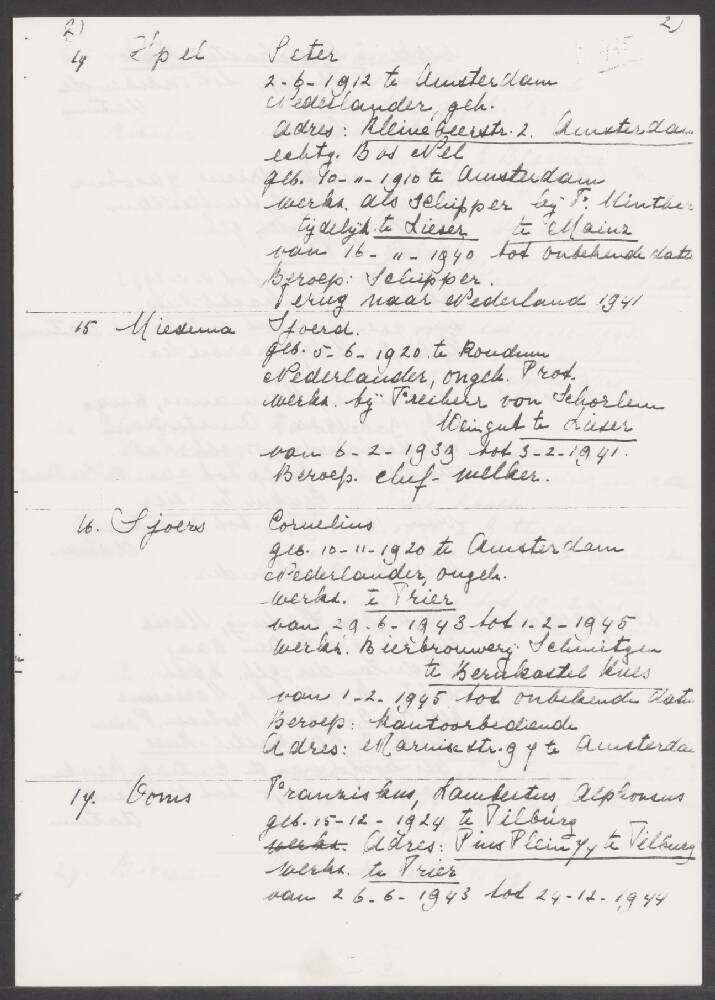 2)
2)
14 Ypel Peter
2-6-1912 te Amsterdam
Nederlander, geh.
Adres: Kleine Beerstr. 2. Amsterdam
echtg. Bos Nel
geb. 10-11-1910 te Amsterdam
werkz. als Schipper by F. Minther
tijdelijk te Lieser te Mainz
van 16-11-1940 tot onbekende datum
Beroep: Schipper.
Terug naar Nederland 1941
15 Miedema Sjoerd.
geb. 5-6-1920 te Koudum
Nederlander, ongeh. Prot.
werkz. bij Freiherr von Schorlem
Weingut te Lieser
van 6-2-1939 tot 3-2-1941.
Beroep. chef-melker.
16. Sjoers Cornelius
geb. 10-11-1920 te Amsterdam
Nederlander, ongeh.
werkz. te Trier
van 29-6-1943 tot 1-2-1945
werkz. Bierbrouwery Schmitzen
te Bernkastel Kues
van 1-2-1945 tot onbekende Datum
Beroep: Kantoorbediende
Adres: Marnixstr. 94 te Amsterdam
17. Ooms Franziskus, Lambertus, Alphonsus
geb. 15-12-1924 te Tilburg
werkz. Adres: Pius Plein 74 te Tilburg
werkz. te Trier
van 26-6-1943 tot 24-12-1944